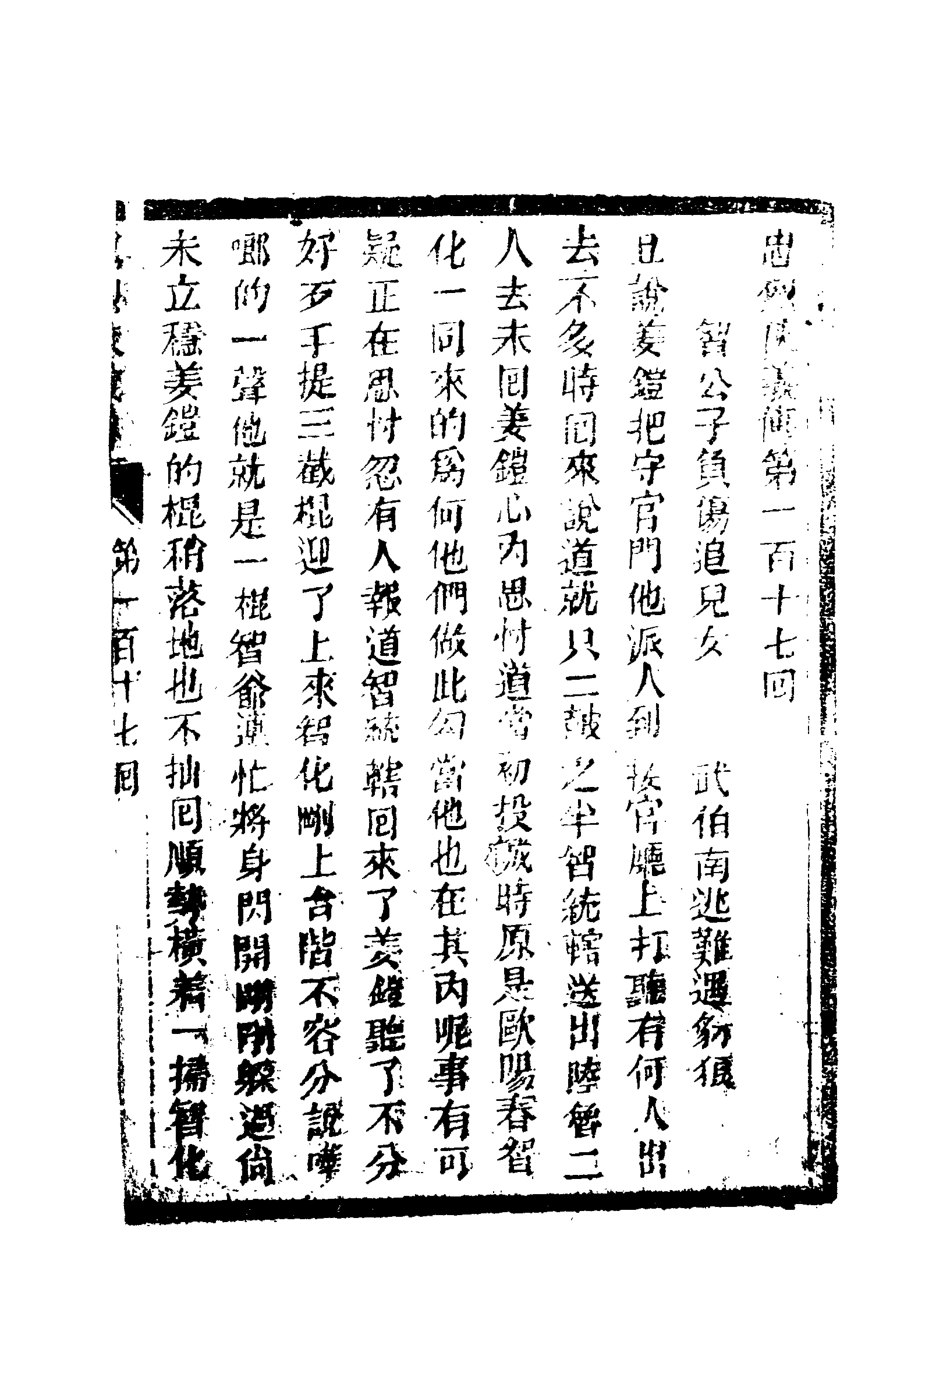 忠烈俠義傳第一百十七回
智公子負傷追兒女　武伯南逃難遇豺狼
且說姜鎧把守宮門他派人到接官廳上打聽有何人出
去不多時回來說道就只二鼓之半智統轄送出陸魯二
人去未回姜鎧心內思忖道當初投誠時原是歐陽春智
化一同來的爲何他們做此勾當他也在其內呢事有可
疑正在思忖忽有人報道智統轄回來了姜鎧聽了不分
好歹手提三截棍迎了上來智化剛上台階不容分說嘩
啷的一聲他就是一棍智爺連忙將身閃開剛剛躲過尙
未立穩姜鎧的棍稍落地也不抽回順勢橫着一掃智化
第一百十七回